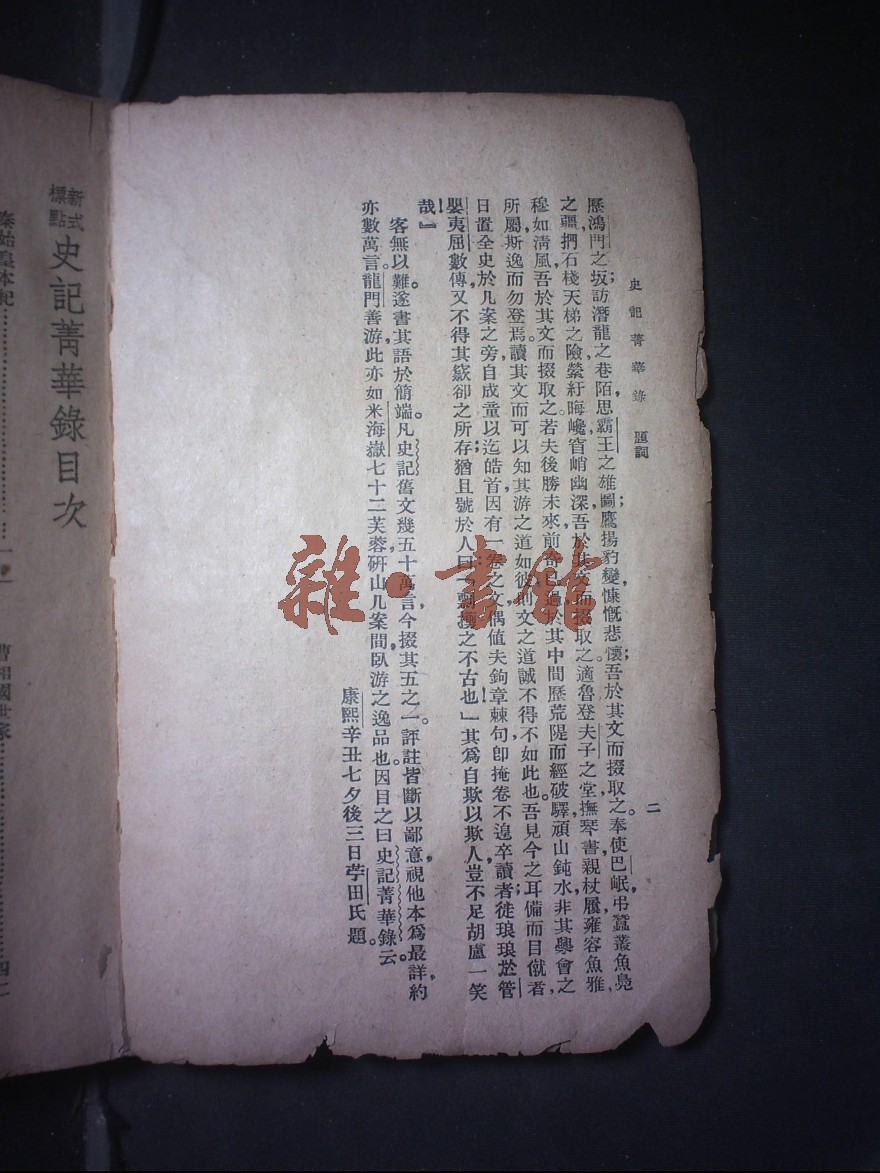 史記菁華錄　題詞
二
歷鴻門之坂，訪潛龍之巷陌，思霸王之雄圖，鷹揚豹變，慷慨悲懷；吾於其文而掇取之。奉使巴岷，弔蠶叢魚鳧
之疆，捫石棧天梯之險，縈紆晦巉，窅峭幽深，吾於其文而掇取之。適魯登夫子之堂，撫琴書，親杖履，雍容魚雅，
穆如清風，吾於其文而掇取之。若夫後勝未來，前奇已過，於其中間，歷荒隄而經破驛，頑山鈍水，非其興會之
所屬，斯逸而勿登焉。讀其文而可以知其游之道如彼，則文之道誠不得不如此也。吾見今之耳備而目僦者，
日置全史於几案之旁，自成童以迄皓首，因有一卷之文，偶值夫鉤章棘句，卽掩卷不遑卒讀者；徒琅琅於管
嬰夷屈數傳，又不得其窾卻之所存，猶且號於人曰：「瓢擴之不古也！」其爲自欺以欺人，豈不足胡盧一笑
哉！』
客無以難，遂書其語於簡端。凡史記舊文幾五十萬言，今掇其五之一。評註皆斷以鄙意，視他本爲最詳，約
亦數萬言。龍門善游，此亦如米海嶽七十二芙蓉硏山，几案間臥游之逸品也。因目之曰史記菁華錄云。
康熙辛丑七夕後三日苧田氏題。
新式標點史記菁華錄目次
秦始皇本紀……一
曹相國世家……四二